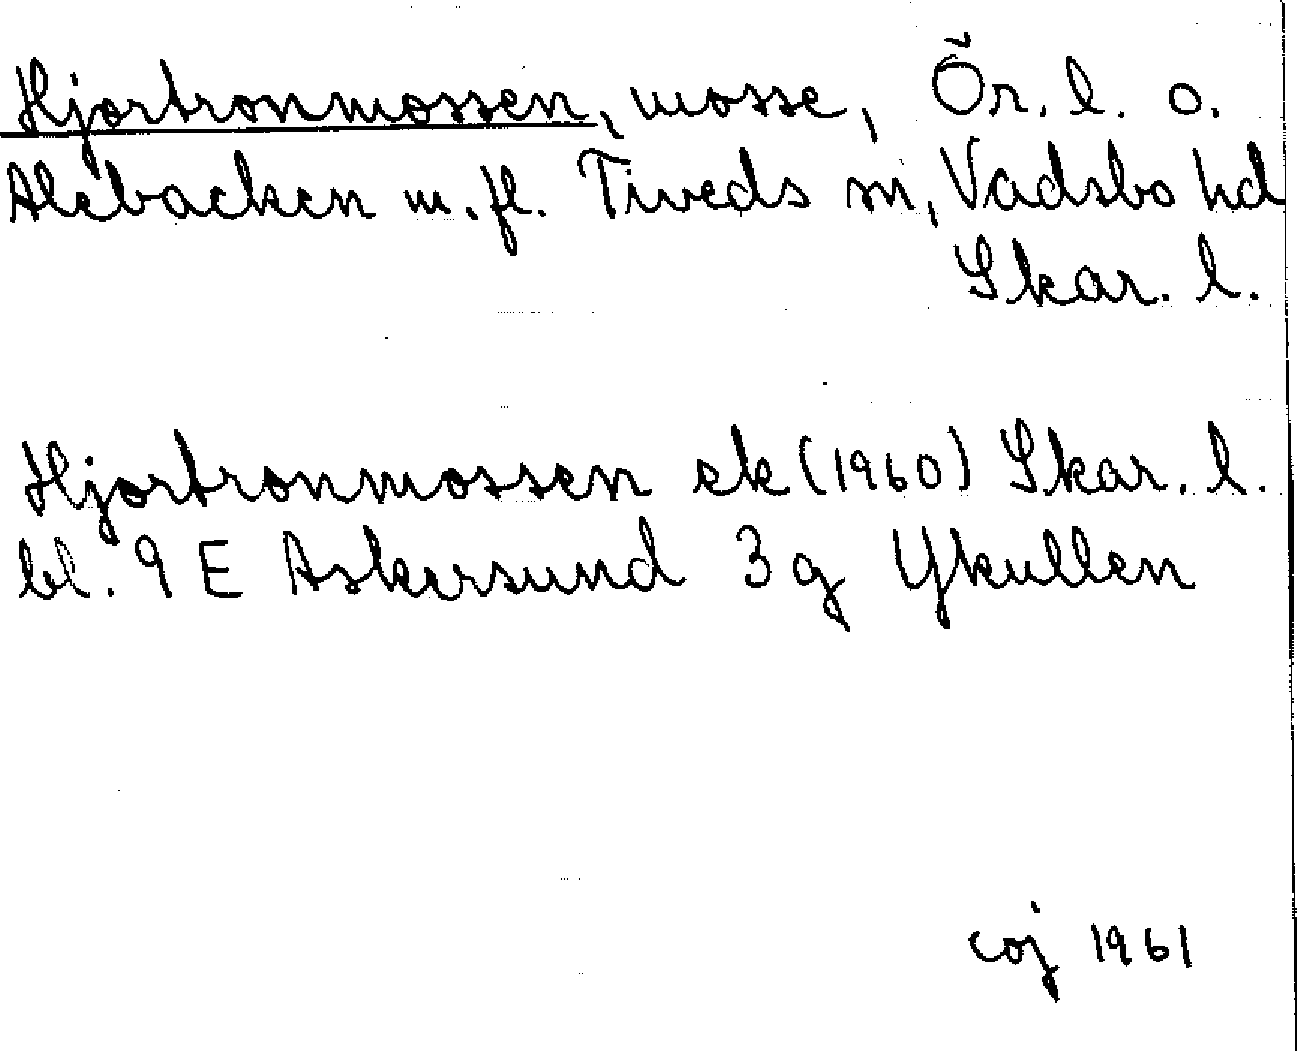 Hjortronmossen, mosse, Ör. l. o.
Alebacken m. fl. Tiveds sn, Vadsbo hd
Skar. l.
Hjortronmossen ek (1960) Skar. l.
bl. 9 E Askersund 3 g Ykullen
coj 1961